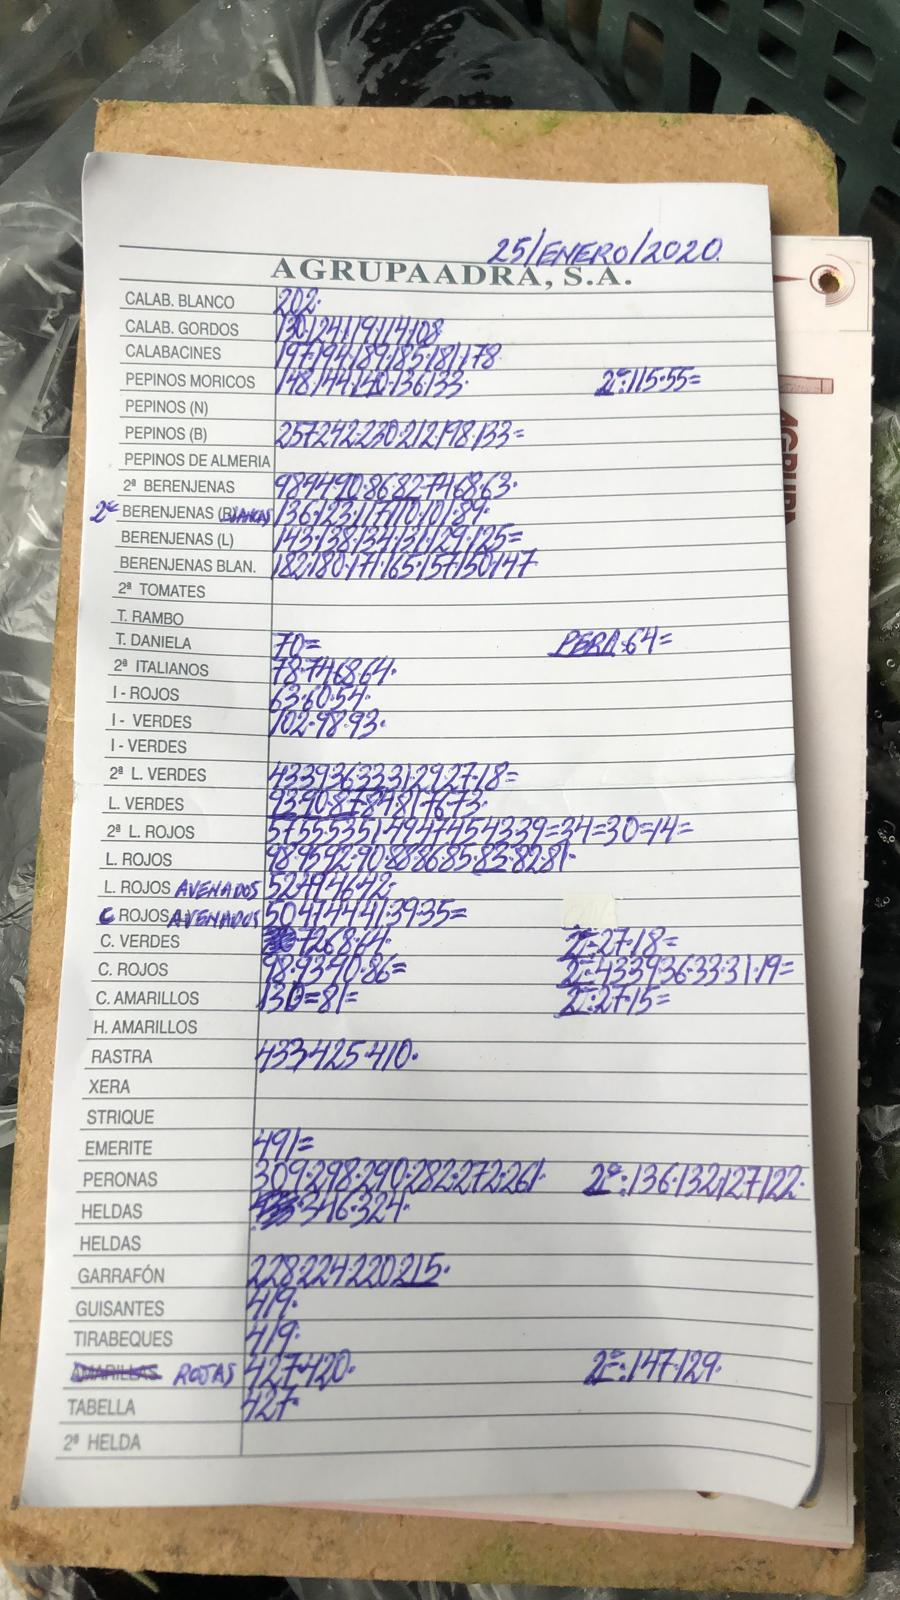 25/ENERO/2020.
AGRUPAADRA, S.A.
CALAB. BLANCO 202.
CALAB. GORDOS 130.124.119.114.108
CALABACINES 197.194.189.185.181.178.
PEPINOS MORICOS 148.144.140.136.133. 2ª:115.55=
PEPINOS (N)
PEPINOS (B) 257.242.230.212.198.133=
PEPINOS DE ALMERIA
2ª BERENJENAS 98.94.90.86.82.74.68.63.
2ª BERENJENAS (BLANCAS) 136.123.117.110.101.89.
BERENJENAS (L) 143.138.134.131.129.125=
BERENJENAS BLAN. 182.180.171.165.157.150.147
2ª TOMATES
T. RAMBO
T. DANIELA 70= PERA:64=
2ª ITALIANOS 78.74.68.64.
I - ROJOS 63.60.54.
I - VERDES 102.98.93.
I - VERDES
2ª L. VERDES 43.39.36.33.31.29.27.18=
L. VERDES 93.90.87.84.81.76.73.
2ª L. ROJOS 57.55.53.51.49.47.45.43.39=34=30=14=
L. ROJOS 98.95.92.90.88.86.85.83.82.81.
L. ROJOS AVENADOS 52.49.46.42.
C ROJOS AVENADOS 50.47.44.41.39.35=
C. VERDES 72.68.64. 2ª=27.18=
C. ROJOS 98.93.90.86= 2ª=43.39.36.33.31.19=
C. AMARILLOS 130=81= 2ª:27.15=
H. AMARILLOS
RASTRA 433.425.410.
XERA
STRIQUE
EMERITE 491=
PERONAS 309.298.290.282.272.261. 2ª:136.132.127.122.
HELDAS 346.324.
HELDAS
GARRAFÓN 228.224.220.215.
GUISANTES 419.
TIRABEQUES 419.
AMARILLAS ROJAS 427.420. 2ª:147.129.
TABELLA 427.
2ª HELDA